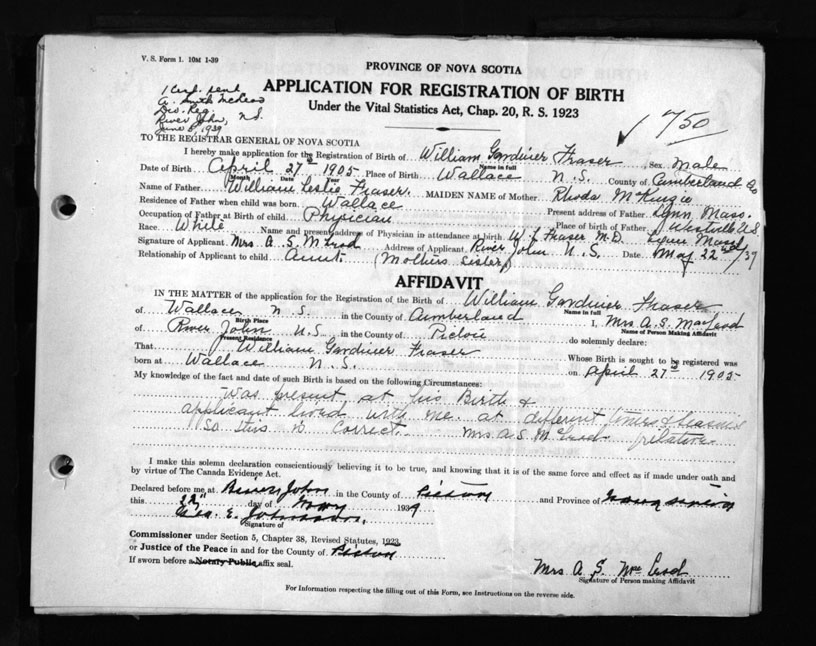 V. S. Form 1. 10M 1-39
PROVINCE OF NOVA SCOTIA
APPLICATION FOR REGISTRATION OF BIRTH
Under the Vital Statistics Act, Chap. 20, R. S. 1923
Div. Reg.
River John, N.S.
June 6, 1939
✓ 750
TO THE REGISTRAR GENERAL OF NOVA SCOTIA
I hereby make application for the Registration of Birth of William Gardiner Fraser Sex Male
Name in full
Date of Birth April 27th 1905 Place of Birth Wallace N. S. County of Cumberland Co
Month Date Year
Name of Father William Leslie Fraser. MAIDEN NAME of Mother Rhoda McKenzie
Residence of Father when child was born Wallace Present address of Father Lynn, Mass.
Occupation of Father at Birth of child Physician Place of birth of Father Westville N.S
Race White Name and present address of Physician in attendance at birth W. L. Fraser M.D. Lynn Mass
Signature of Applicant Mrs A. S. McLeod Address of Applicant River John N. S. Date May 22nd/39
Relationship of Applicant to child Aunt (Mothers Sister)
AFFIDAVIT
IN THE MATTER of the application for the Registration of the Birth of William Gardiner Fraser
Name in full
of Wallace N. S. in the County of Cumberland I, Mrs A. S. MacLeod
Birth Place Name of Person Making Affidavit
of River John N.S in the County of Pictou do solemnly declare:
Present Residence
That William Gardiner Fraser Whose Birth is sought to be registered was
born at Wallace N. S. on April 27th 1905
My knowledge of the fact and date of such Birth is based on the following Circumstances:
was present at his Birth &
applicant lived with me at different times &
So this is correct. Mrs A S McLeod
I make this solemn declaration conscientiously believing it to be true, and knowing that it is of the same force and effect as if made under oath and
by virtue of The Canada Evidence Act.
Declared before me at River John in the County of Pictou and Province of Nova Scotia
this 22" day of May 1939
Geo. E. Johnson.
Signature of
Commissioner under Section 5, Chapter 38, Revised Statutes, 1923
or Justice of the Peace in and for the County of Pictou
If sworn before a Notary Public affix seal.
Mrs A. S. McLeod
Signature of Person making Affidavit
For Information respecting the filling out of this Form, see Instructions on the reverse side.